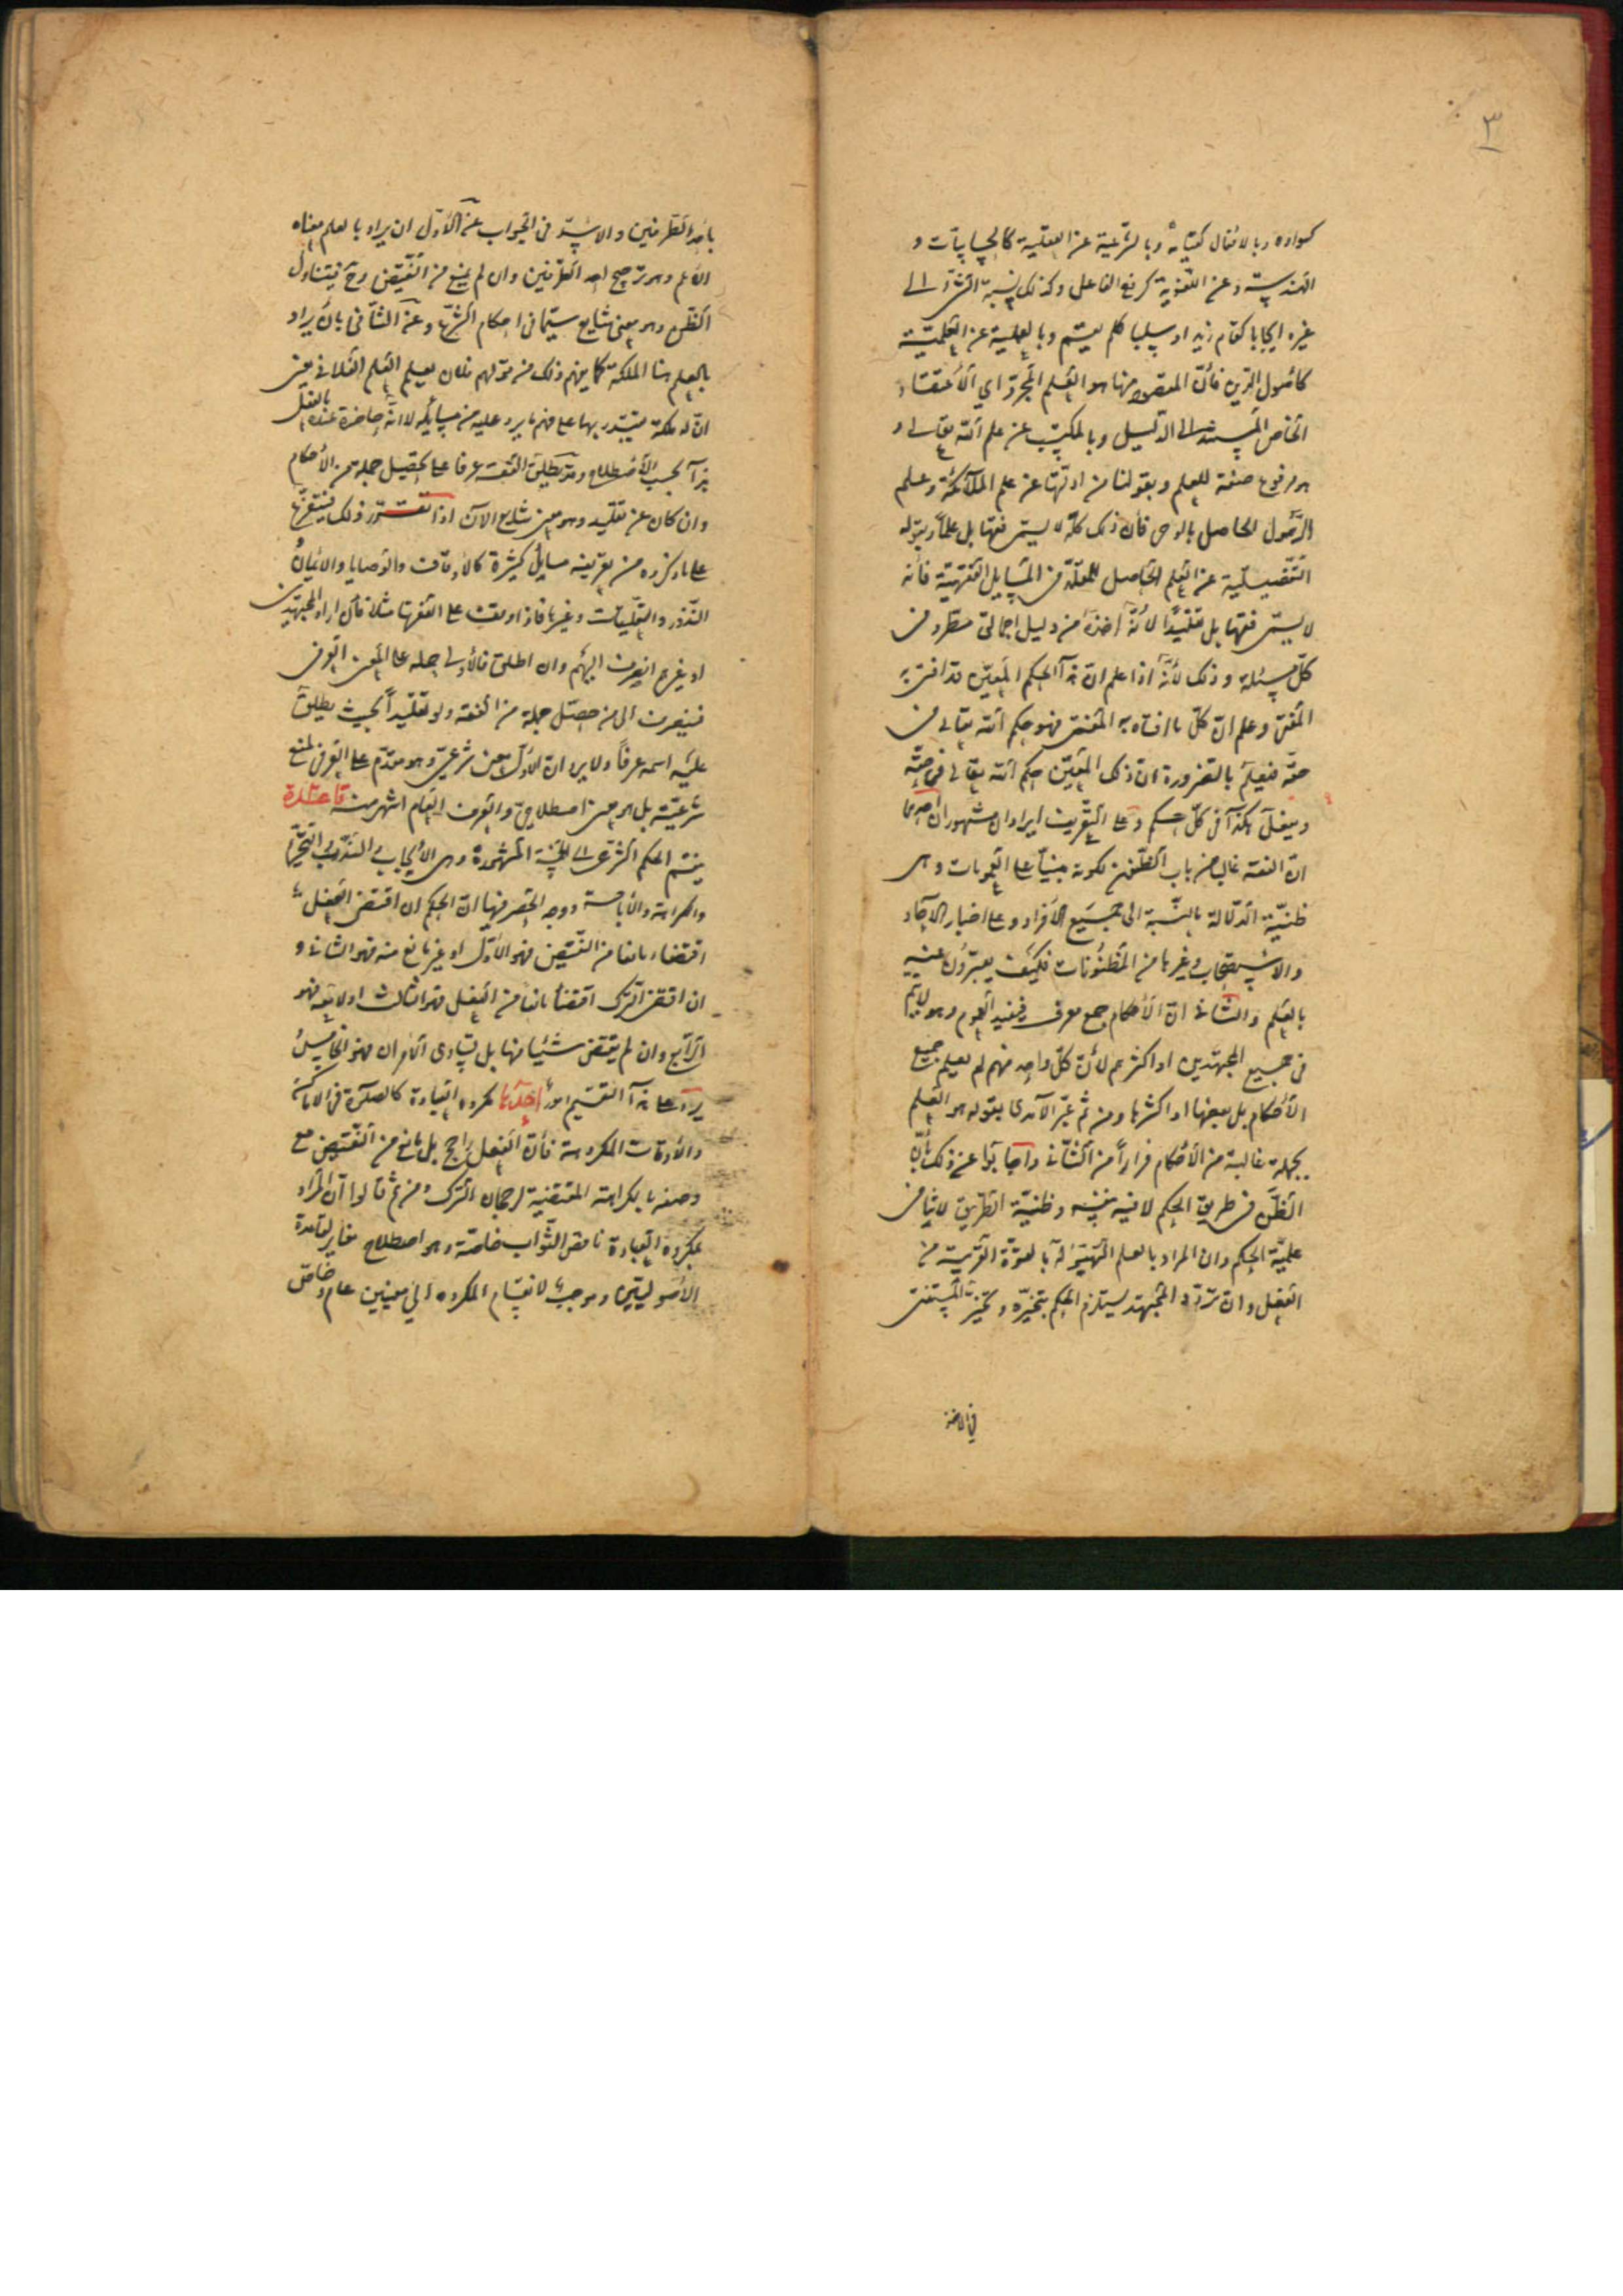 ٣
كسواده وبالافعال كتابة وبالشرعية عن العقلية كالحسابيات و
الهندسية وعن اللغوية كرفع الفاعل وكذلك نسبة الشئ الى
غيره ايجابا كقام زيد او سلبا كلم يقم وبالعملية عن العلمية
كاصول الدين فان المقصود منها هو العلم المجرد اي الاعتقاد
الخاص المستند الى الدليل وبالمكتسب عن علم الله تعالى و
هو مرفوع صفة للعلم وبقولنا من ادلتها عن علم الملائكة وعلم
الرسول الحاصل بالوحى فان ذلك كله لا يسمى فقها بل علما وبقوله
التفصيلية عن العلم الحاصل للمقلد من المسايل الفقهية فانه
لا يسمى فقها بل تقليدا لانه اخذه من دليل اجمالى مطرد فى
كل مسئلة وذلك لانه اذا علم ان هذا الحكم المعين قد افتى به
المفتى وعلم ان كل ما افتاه به المفتى فهو حكم الله تعالى فى
حقه فيعلم بالضرورة ان ذلك المعين حكم الله تعالى فى حقه
ويفعل هكذا فى كل حكم وعلى التعريف ايرادان مشهوران احدهما
ان الفقه غالبه من باب الظنون لكونه مبنيا على العمومات وهى
ظنية الدلالة بالنسبة الى جميع الافراد وعلى اخبار الآحاد
والاستصحاب وغيرها من المظنونات فكيف يعبرون عنه
بالعلم والثانى ان الاحكام جمع معرف فيفيد العموم وهو لا يتم
فى جميع المجتهدين او اكثرهم لان كل واحد منهم لم يعلم جميع
الاحكام بل بعضها او اكثرها ومن ثم عبر الآمدى بقوله هو العلم
بجملة غالبة من الاحكام فرارا من الثانى واجابوا عن ذلك بان
الظن فى طريق الحكم لا فيه نفسه وظنية الطريق لا ينافى
علمية الحكم وان المراد بالعلم التهيؤ له بالقوة القريبة من
الفعل وان تردد المجتهد يستلزم الحكم بتخيره وتخير المستفتى
فى الاخذ
باحد الطرفين والاسد فى الجواب عن الاول ان يراد بالعلم معناه
الاعم وهو ترجيح احد الطرفين وان لم يمنع من النقيض وح فيتناول
الظن وهو معنى شايع سيما فى احكام الشرع وعن الثانى بان يراد
بالعلم هنا الملكة كما يفهم ذلك من قولهم فلان يعلم العلم الفلانى يعنى
ان له ملكة يقتدر بها على فهم ما يرد عليه من مسايله لا انه حاضرة عنده بالفعل
هذا بحسب الاصطلاح وقد يطلق الفقه عرفا على تحصيل جملة من الاحكام
وان كان عن تقليد وهو معنى شايع الآن اذا تقرر ذلك فيتفرع
على ما ذكروه من تعريفه مسايل كثيرة كالاوقاف والوصايا والايمان
النذور والتعليقات وغيرها فاذا وقف على الفقهاء مثلا فان اراد المجتهدين
او غيرهم انصرف اليهم وان اطلق فالاولى حمله على المعنى العرفى
فينصرف الى من حصل جملة من الفقه ولو تقليدا بحيث يطلق
عليه اسمه عرفا ولا يرد ان الاول معنى شرعى وهو مقدم على العرفى لمنع
شرعيته بل هو معنى اصطلاحى والعرف العام اشهر منه قاعدة
ينقسم الحكم الشرعى الى الخمسة المشهورة وهى الايجاب والندب والتحريم
والكراهة والاباحة ووجه الحصر فيها ان الحكم ان اقتضى الفعل
اقتضاء مانعا من النقيض فهو الاول او غير مانع منه فهو الثانى و
ان اقتضى الترك اقتضاء مانعا من الفعل فهو الثالث او لا معه فهو
الرابع وان لم يقتض شيئا منها بل تساوى الامران فهو الخامس
يرد على هذا التقسيم امور احدها مكروه العبادة كالصلوة فى الاماكن
والاوقات المكروهة فان الفعل راجح بل مانع من النقيض مع
وصفه بالكراهة المقتضية لرجحان الترك ومن ثم قالوا ان المراد
بمكروه العبادة ناقص الثواب خاصة وهو اصطلاح مغاير لقاعدة
الاصوليين وموجب لانقسام المكروه الى معنيين عام وخاص